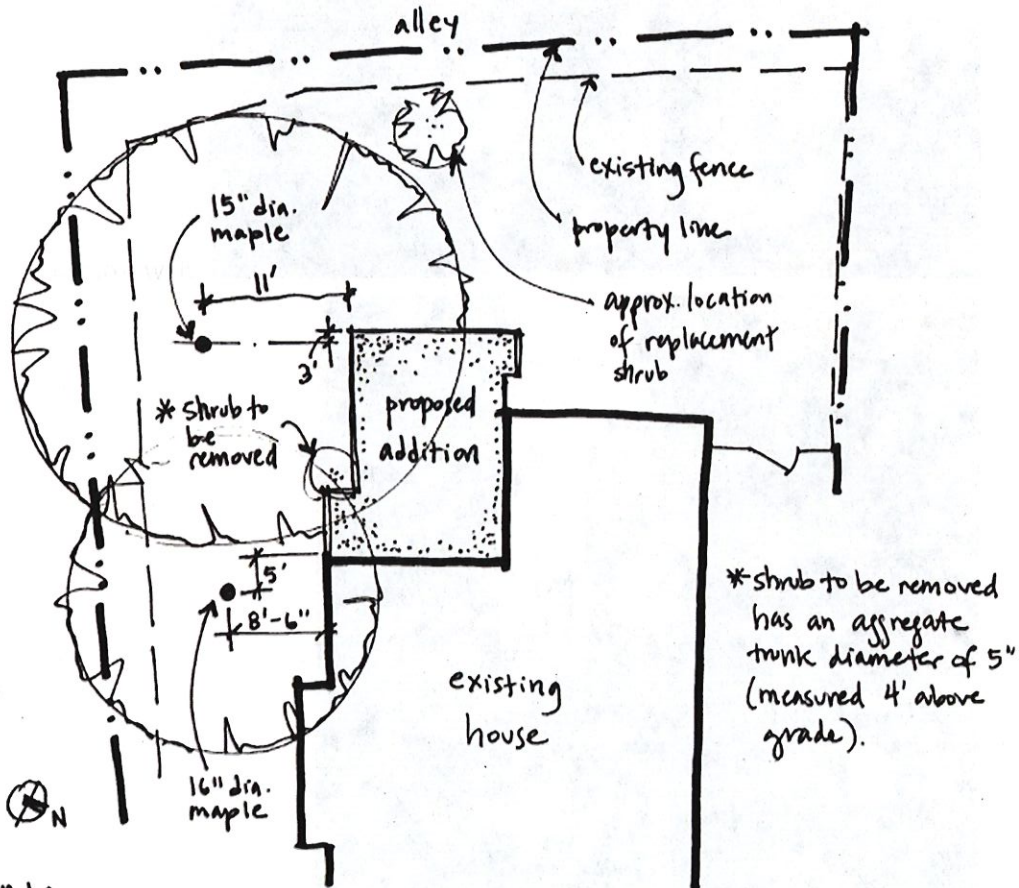 alley
existing fence
property line
approx. location
of replacement
shrub
15" dia.
maple
11'
3'
* shrub to
be
removed
proposed
addition
5'
8'-6"
16" dia.
maple
existing
house
* shrub to be removed
has an aggregate
trunk diameter of 5"
(measured 4' above
grade).
N